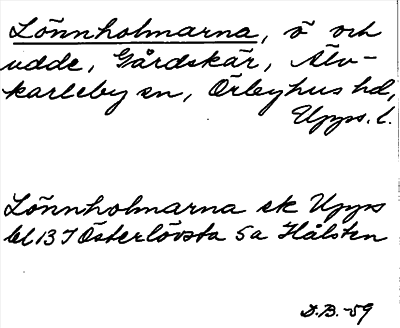 Lönnholmarna, ö och
udde, Gårdskär, Älv-
karleby sn, Örbyhus hd,
Upps. l.
Lönnholmarna ek Upps
bl 13 J Österlövsta 5a Hålsten
D.B. -59